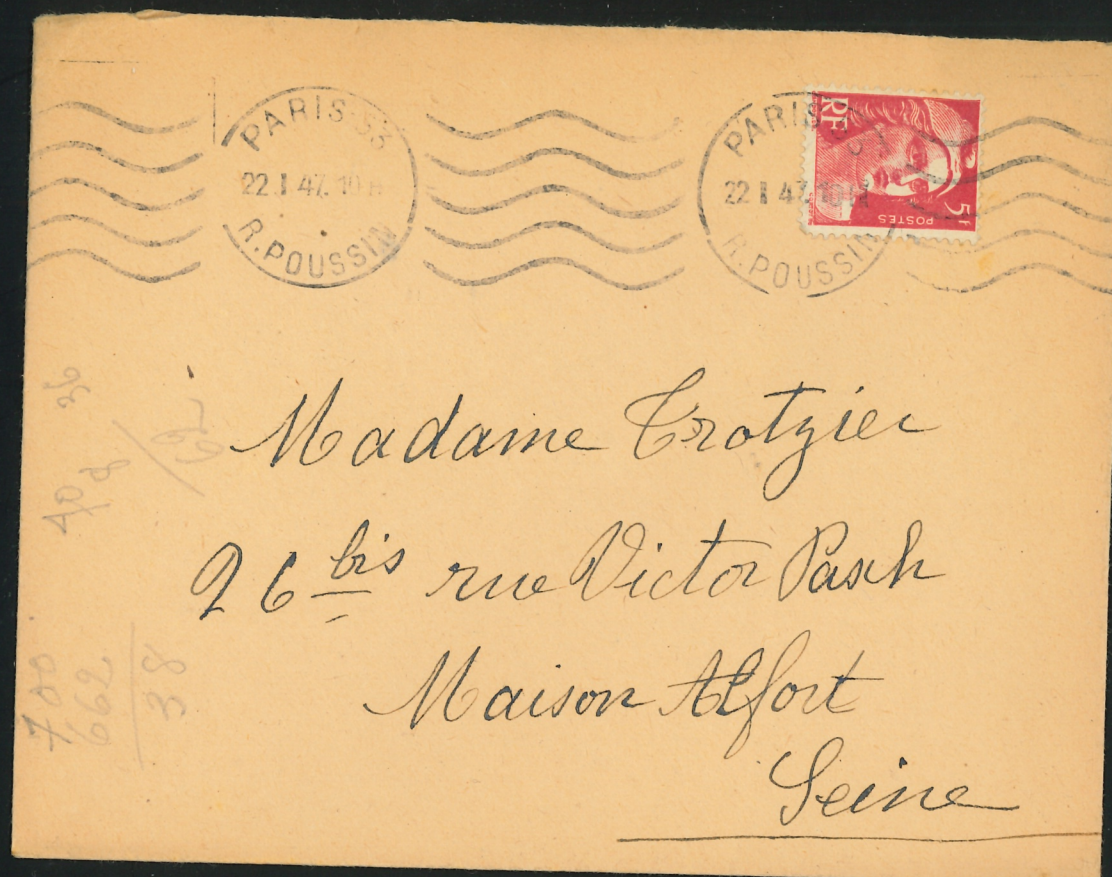 PARIS·53
22·I 47. 10 H
R. POUSSIN
PARIS 53
22 I 47. 10 H
R. POUSSIN
RF
5F
POSTES
Madame Trotzier
26 bis rue Victor Basch
Maison Alfort
Seine
40
62
36
700
662
38